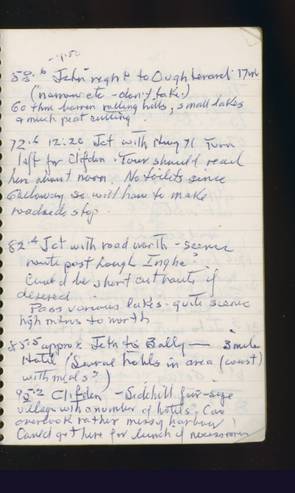 11.50
58.6 Jctn right to Oughterard 17mi
(narrow etc - don't take)
Go thru barren rolling hills, small lakes
& much peat cutting.
72.6 12:20 Jct with Hwy 71 Turn
left for Clifden. Tour should reach
here about noon. No toilets since
Galloway so will have to make
roadside stop.
82.4 Jct with road north - scenic
route past Lough Inagh
Could be short cut route if
desired
Pass various lakes - quite scenic
high mtns to north
85.5 approx Jctn to Bally 3 miles
Hotel (Several hotels in area (coast)
with meals?)
95.2 Clifden - Sidehill fair-size
village with a number of hotels. Can
overlook rather messy harbour
Could get here for lunch if necessary